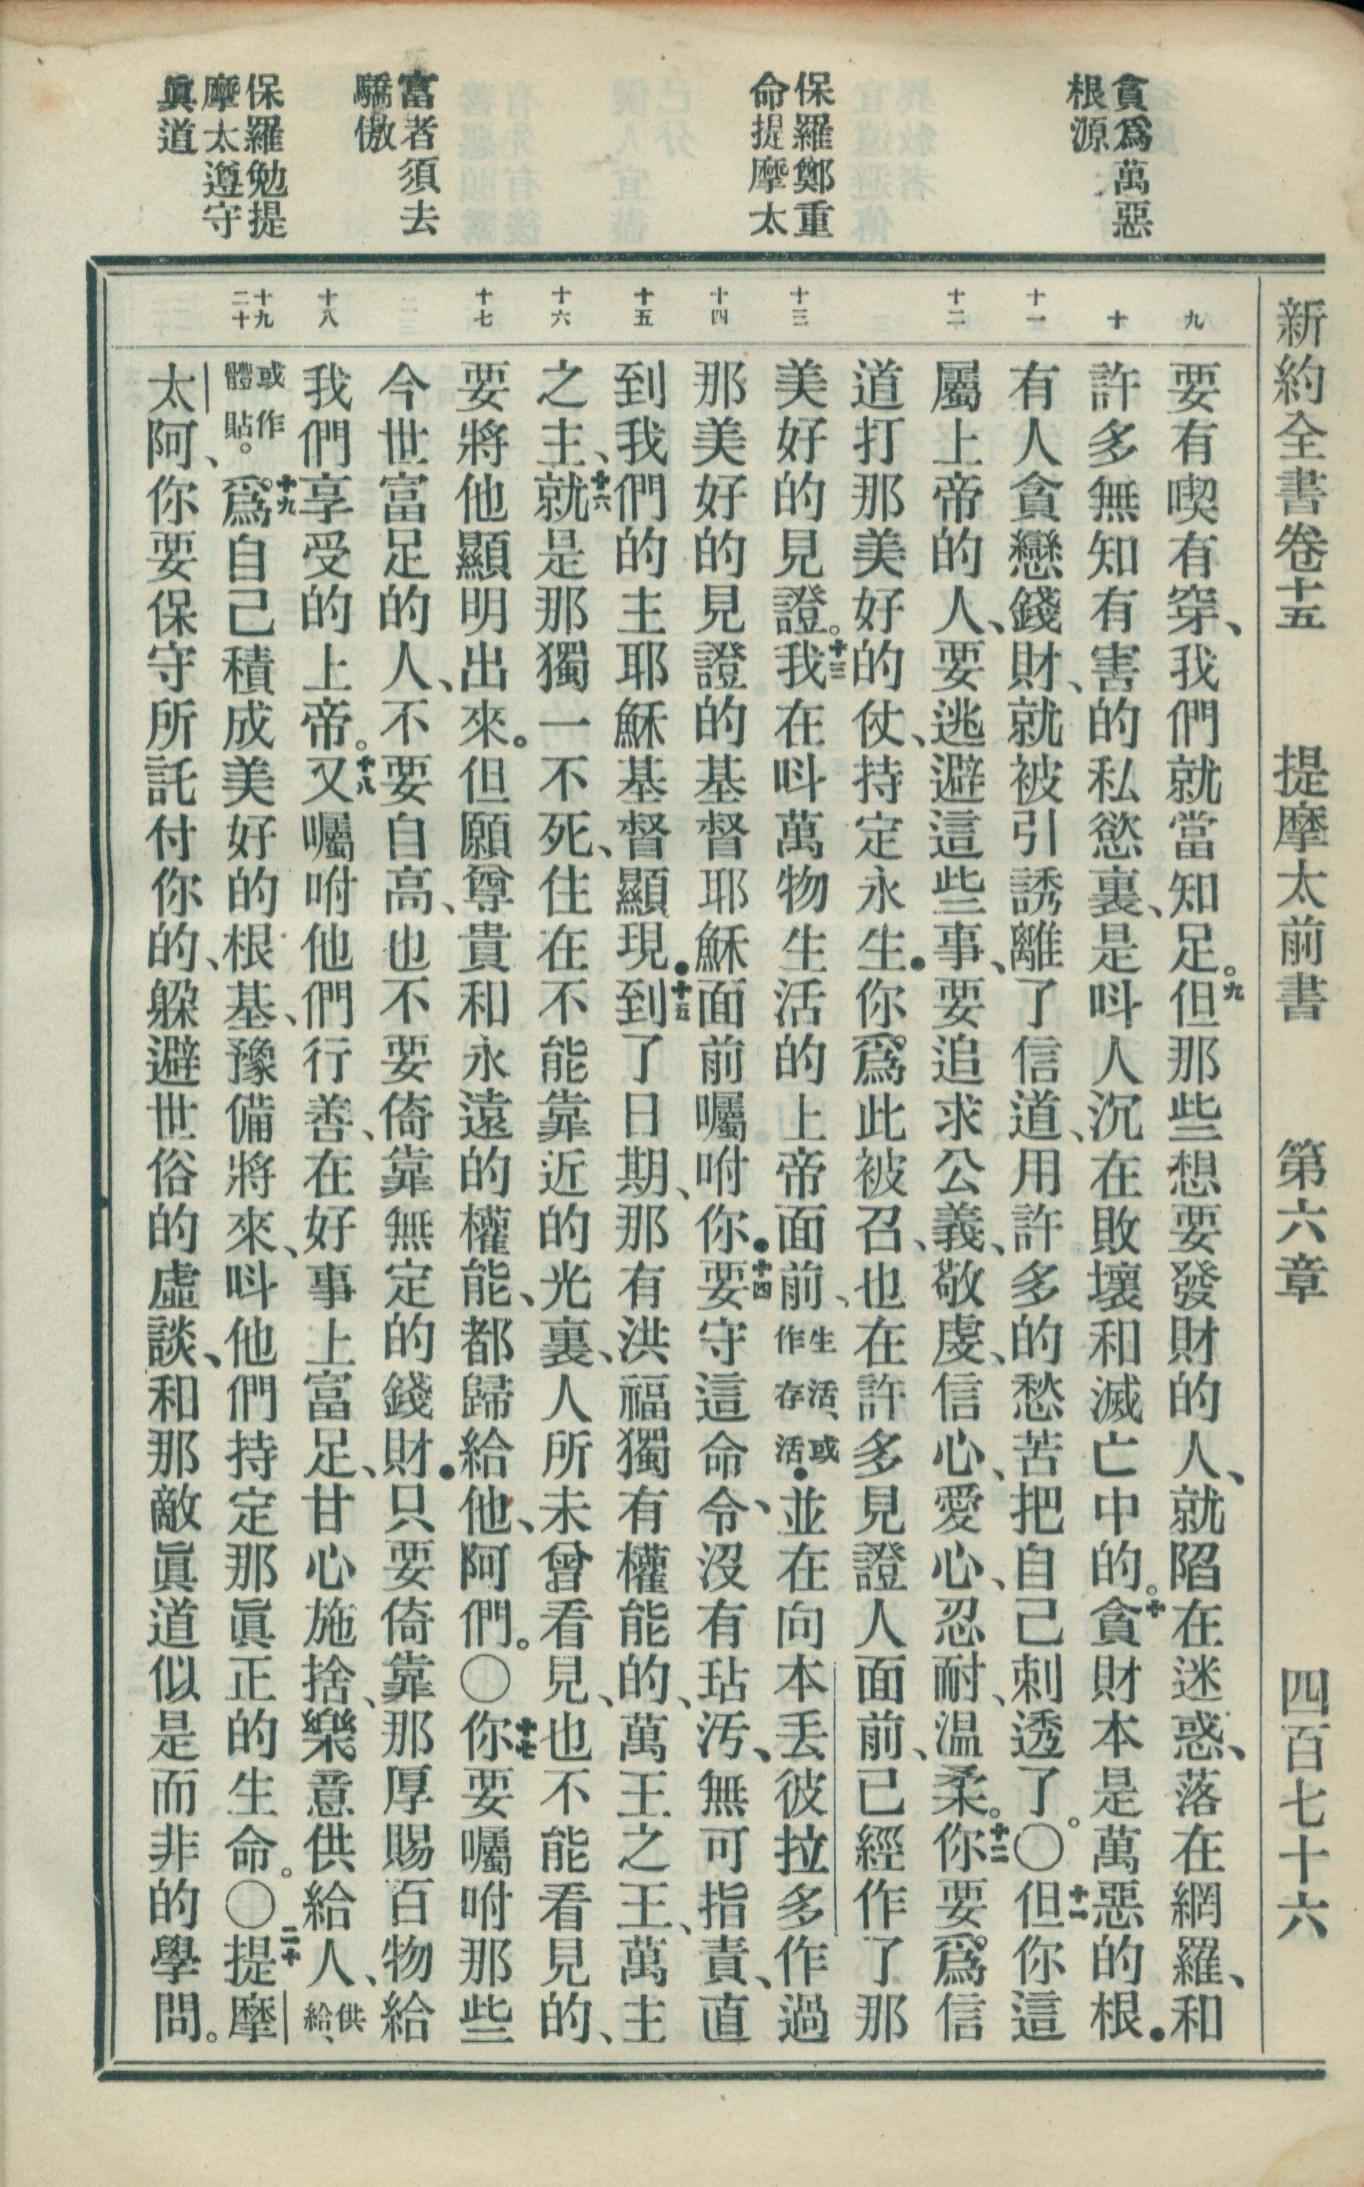 新約全書卷十五　提摩太前書　第六章　四百七十六
貪爲萬惡
根源
保羅鄭重
命提摩太
富者須去
驕傲
保羅勉提
摩太遵守
眞道
九
十
十一
十二
十三
十四
十五
十六
十七
十八
十九
二十
要有喫有穿、我們就當知足。九但那些想要發財的人、就陷在迷惑、落在網羅、和
許多無知有害的私慾裏、是呌人沉在敗壞和滅亡中的。十貪財本是萬惡的根．
有人貪戀錢財、就被引誘離了信道、用許多的愁苦把自己刺透了。〇十一但你這
屬上帝的人、要逃避這些事、要追求公義、敬虔、信心、愛心、忍耐、温柔。十二你要爲信
道打那美好的仗、持定永生．你爲此被召、也在許多見證人面前、已經作了那
美好的見證。十三我在呌萬物生活的上帝面前、生活、或作存活．並在向本丟彼拉多作過
那美好的見證的基督耶穌面前囑咐你．十四要守這命令、沒有玷汚、無可指責、直
到我們的主耶穌基督顯現．十五到了日期、那有洪福獨有權能的、萬王之王、萬主
之主、十六就是那獨一不死、住在不能靠近的光裏、人所未曾看見、也不能看見的、
要將他顯明出來。但願尊貴和永遠的權能、都歸給他、阿們。〇十七你要囑咐那些
今世富足的人、不要自高、也不要倚靠無定的錢財．只要倚靠那厚賜百物給
我們享受的上帝。十八又囑咐他們行善、在好事上富足、甘心施捨、樂意供給人、供給、
或作體貼。十九爲自己積成美好的根基、豫備將來、呌他們持定那眞正的生命。〇二十提摩
太阿、你要保守所託付你的、躲避世俗的虛談、和那敵眞道似是而非的學問。